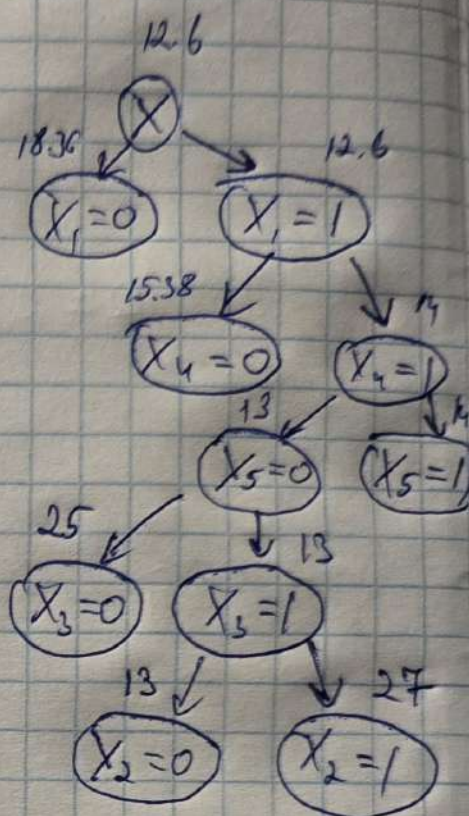 12.6
X
18.36 12.6
X₁=0 X₁=1
15.38 14
X₄=0 X₄=1
13 14
X₅=0 X₅=1
25 13
X₃=0 X₃=1
13 27
X₂=0 X₂=1